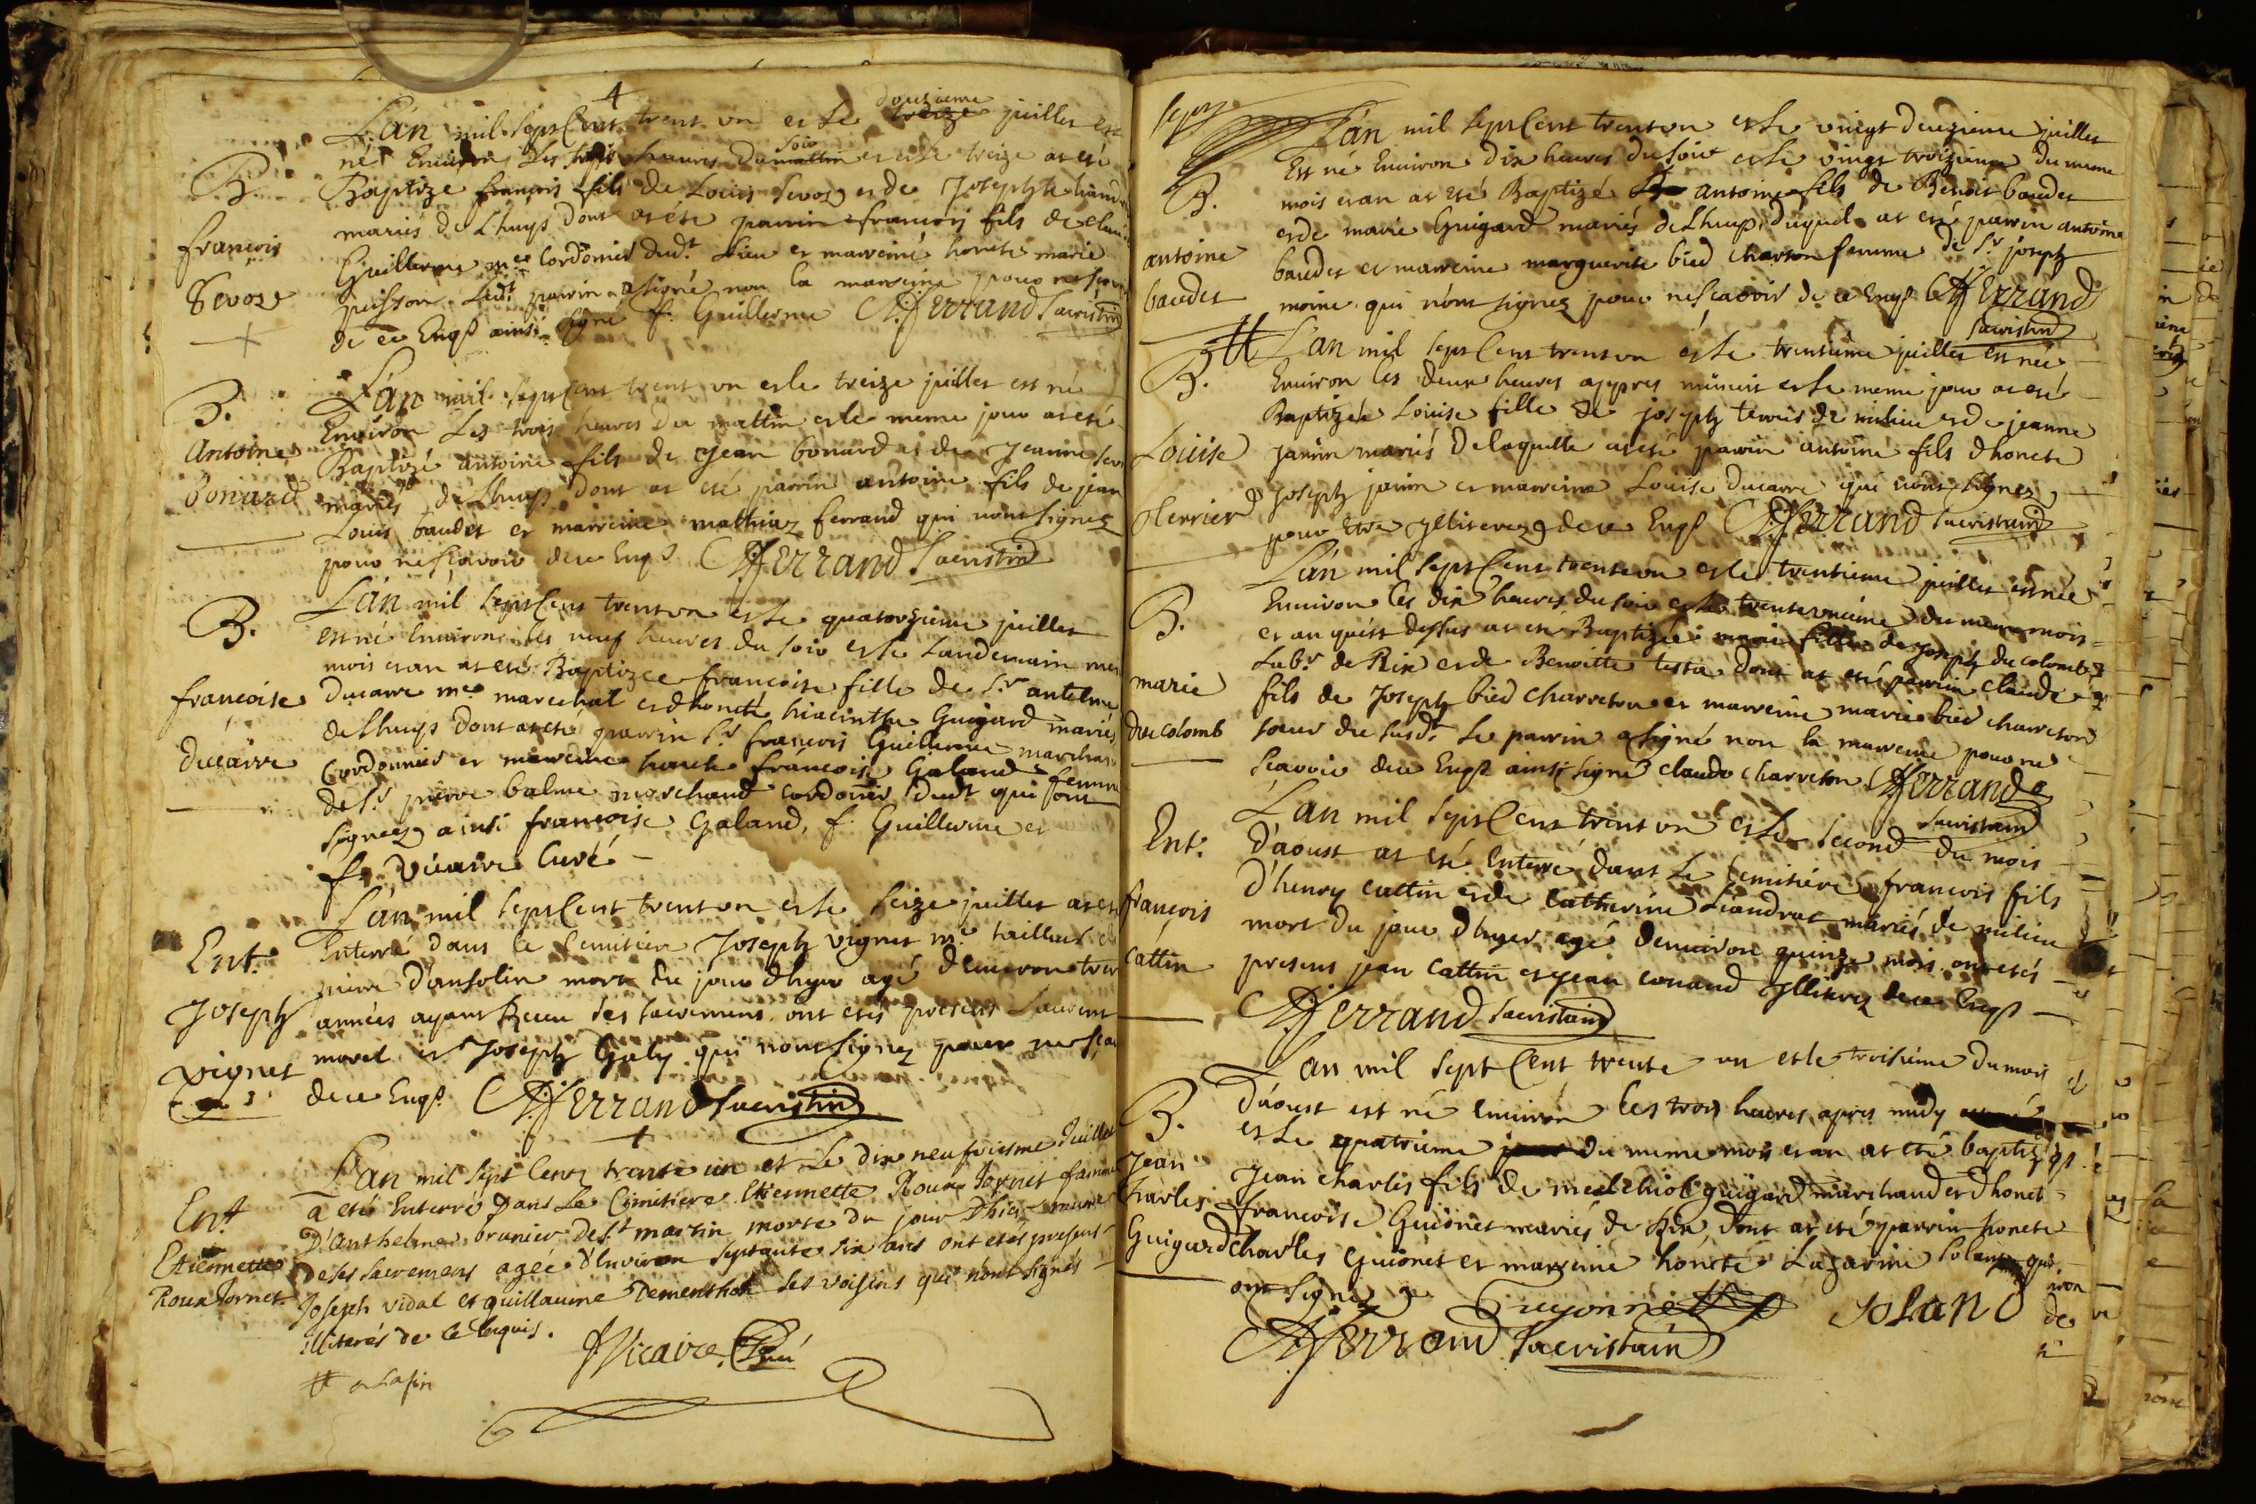 L'an mil sept Cent trent un et le douzieme juillet est
né Environ les trois heures du soir et le treize at eté
B. Baptize françois fils de Louis Sevoz et de Josephte
françois mariés de Lhuys dont at été parrin françois fils de
Sevoz Guillerme me Cordonnier dudt Lieu et marreine honete marie
puisson Ledt parrin a signé non la marreine pour ne
de ce Enqs ainsi signé f. Guillerme Ferrand Sacristin
L'an mil sept Cent trent un et le treize juillet est né
B. Environ Les trois heures du mattin et le meme jour at eté
Antoine Baptizé antoine fils de Jean bonard et de Jeanne
bonard mariés de Lhuys dont at eté parrin antoine fils de jean
Louis baudet et marreine mathiaz ferrand qui n'ont signez
pour ne sçavoir de ce Enqs Ferrand Sacristin
L'án mil sept Cent trent un et le quatorzieme juillet
B. est né Environ les neuf heures du soir et le Landemain
mois et an at eté Baptizee francoise fille de Sr antelme
francoise Ducarre me marechal et d'honete hiacinthe Guigard mariés
ducarre de Lhuys dont at eté parrin Sr françois Guillerme marchand
Cordonnier et marreine honete francoise Galand femme
de Sr pierre balme marchand cordonier dudt qui sont
signez ainsi françoise Galand, f. Guillerme et
f. vicaire Curé
L'án mil sept Cent trent un et le seize juillet at eté
Ent. Enterré dans le Cemitiere Joseph vignet me tailleur
Joseph d'ansolin mort du jour d'hyer agé d'environ
vignet années ayant Receu ses sacremens ont etés presens Laurent
morel et Joseph Galy qui n'ont signez pour ne
de ce Enqs Ferrand Sacristin
L'an mil sept Cent trente un et Le dix neufviesme Juillet
Ent a eté Enterré dans Le Cimetiere Etiennette Roux Tornet famme
Etiennette D'anthelme brunier de St martin morte du jour d'hier munie
Roux Tornet. de ses sacremens agée d'Environ septante six ans ont etés presens
Joseph vidal et guillaume Dementhon ses voisins qui n'ont signés
illiterés de ce Enquis.
Vicaire Curé
L'an mil sept Cent trent un et le vingt deuzieme juillet
Est né Environ dix heures du soir et le vingt troizieme du meme
B. mois et an at eté Baptizé antoine fils de Benoit baudet
et de marie Guigard mariés de Lhuys duquel at eté parrin antoine
antoine baudet et marreine marguerite bied charton femme de Sr joseph
baudet moine qui n'ont signez pour ne sçavoir de ce Enqs Ferrand
Sacristin
L'an mil sept Cent trent un et le trentieme juillet est née
B. Environ les deux heures appres minuit et le meme jour at eté
Baptizée Louise fille de joseph de milieu et de jeanne
Louise janin mariés de laquelle at eté parrin antoine fils d'honete
joseph janin et marreine Louise Ducarre qui n'ont signez
pour Etre jlliterez de ce Enqs Ferrand Sacristain
L'án mil sept Cent trente un et le trentieme juillet est née
B. Environ les dix heures du soir et le trente unieme du meme mois
et an qu'est dessus at eté Baptizée marie fille de joseph du colomb
marie Labr de Rix et de Benoitte testa dont at eté parrin claude
du colomb fils de Joseph bied charreton et marreine marie bied charreton
soeur du susdt Le parrin a signé non la marreine pour ne
scavoir de ce Enqs ainsi signé claude charreton Ferrand
Sacristain
L'an mil sept Cent trent un et le second du mois
Ent. d'aoust at eté Enterré dans Le Cemitiere francois fils
françois d'henry cattin et de Catherine mariés de milieu
cattin mort du jour d'hyer agé d'environ quinze mois ont etés
presens jean Cattin et jean conand jlliterez de ce Enqs
Ferrand Sacristain
L'an mil sept Cent trente un et le troisieme du mois
B. d'aoust est né Environ les trois heures apres midy
et le quatrieme du meme mois et an at eté baptizé
Jean Jean charles fils de melchiol guigard marchand et d'honete
Charles francoise Guionet mariés de Rix dont at eté parrin honete
Guigard charles Guionet et marreine honete Lazarine Solan qui
ont signez
Guyonnet Solan
Ferrand Sacristain